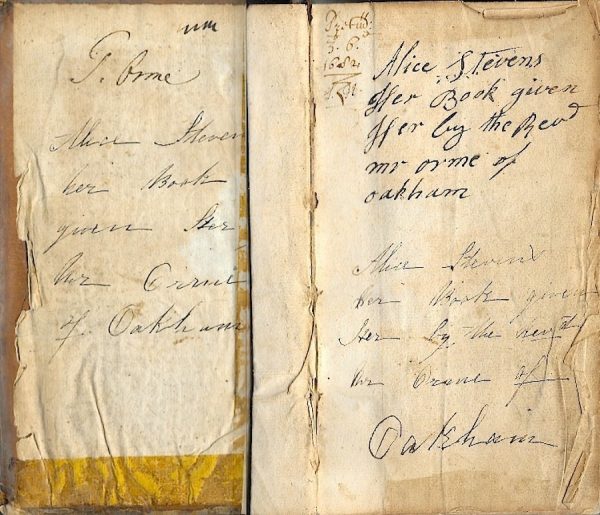 T. Orme
Alice Steven
her Book
given Her
Mr Orme
of Oakham
Pretiū
3. 6.
1682
Alice Stevens
Her Book given
Her by the Revd
mr orme of
oakham
Alice Stevens
her Book given
Her by the revd
Mr Orme of
Oakham